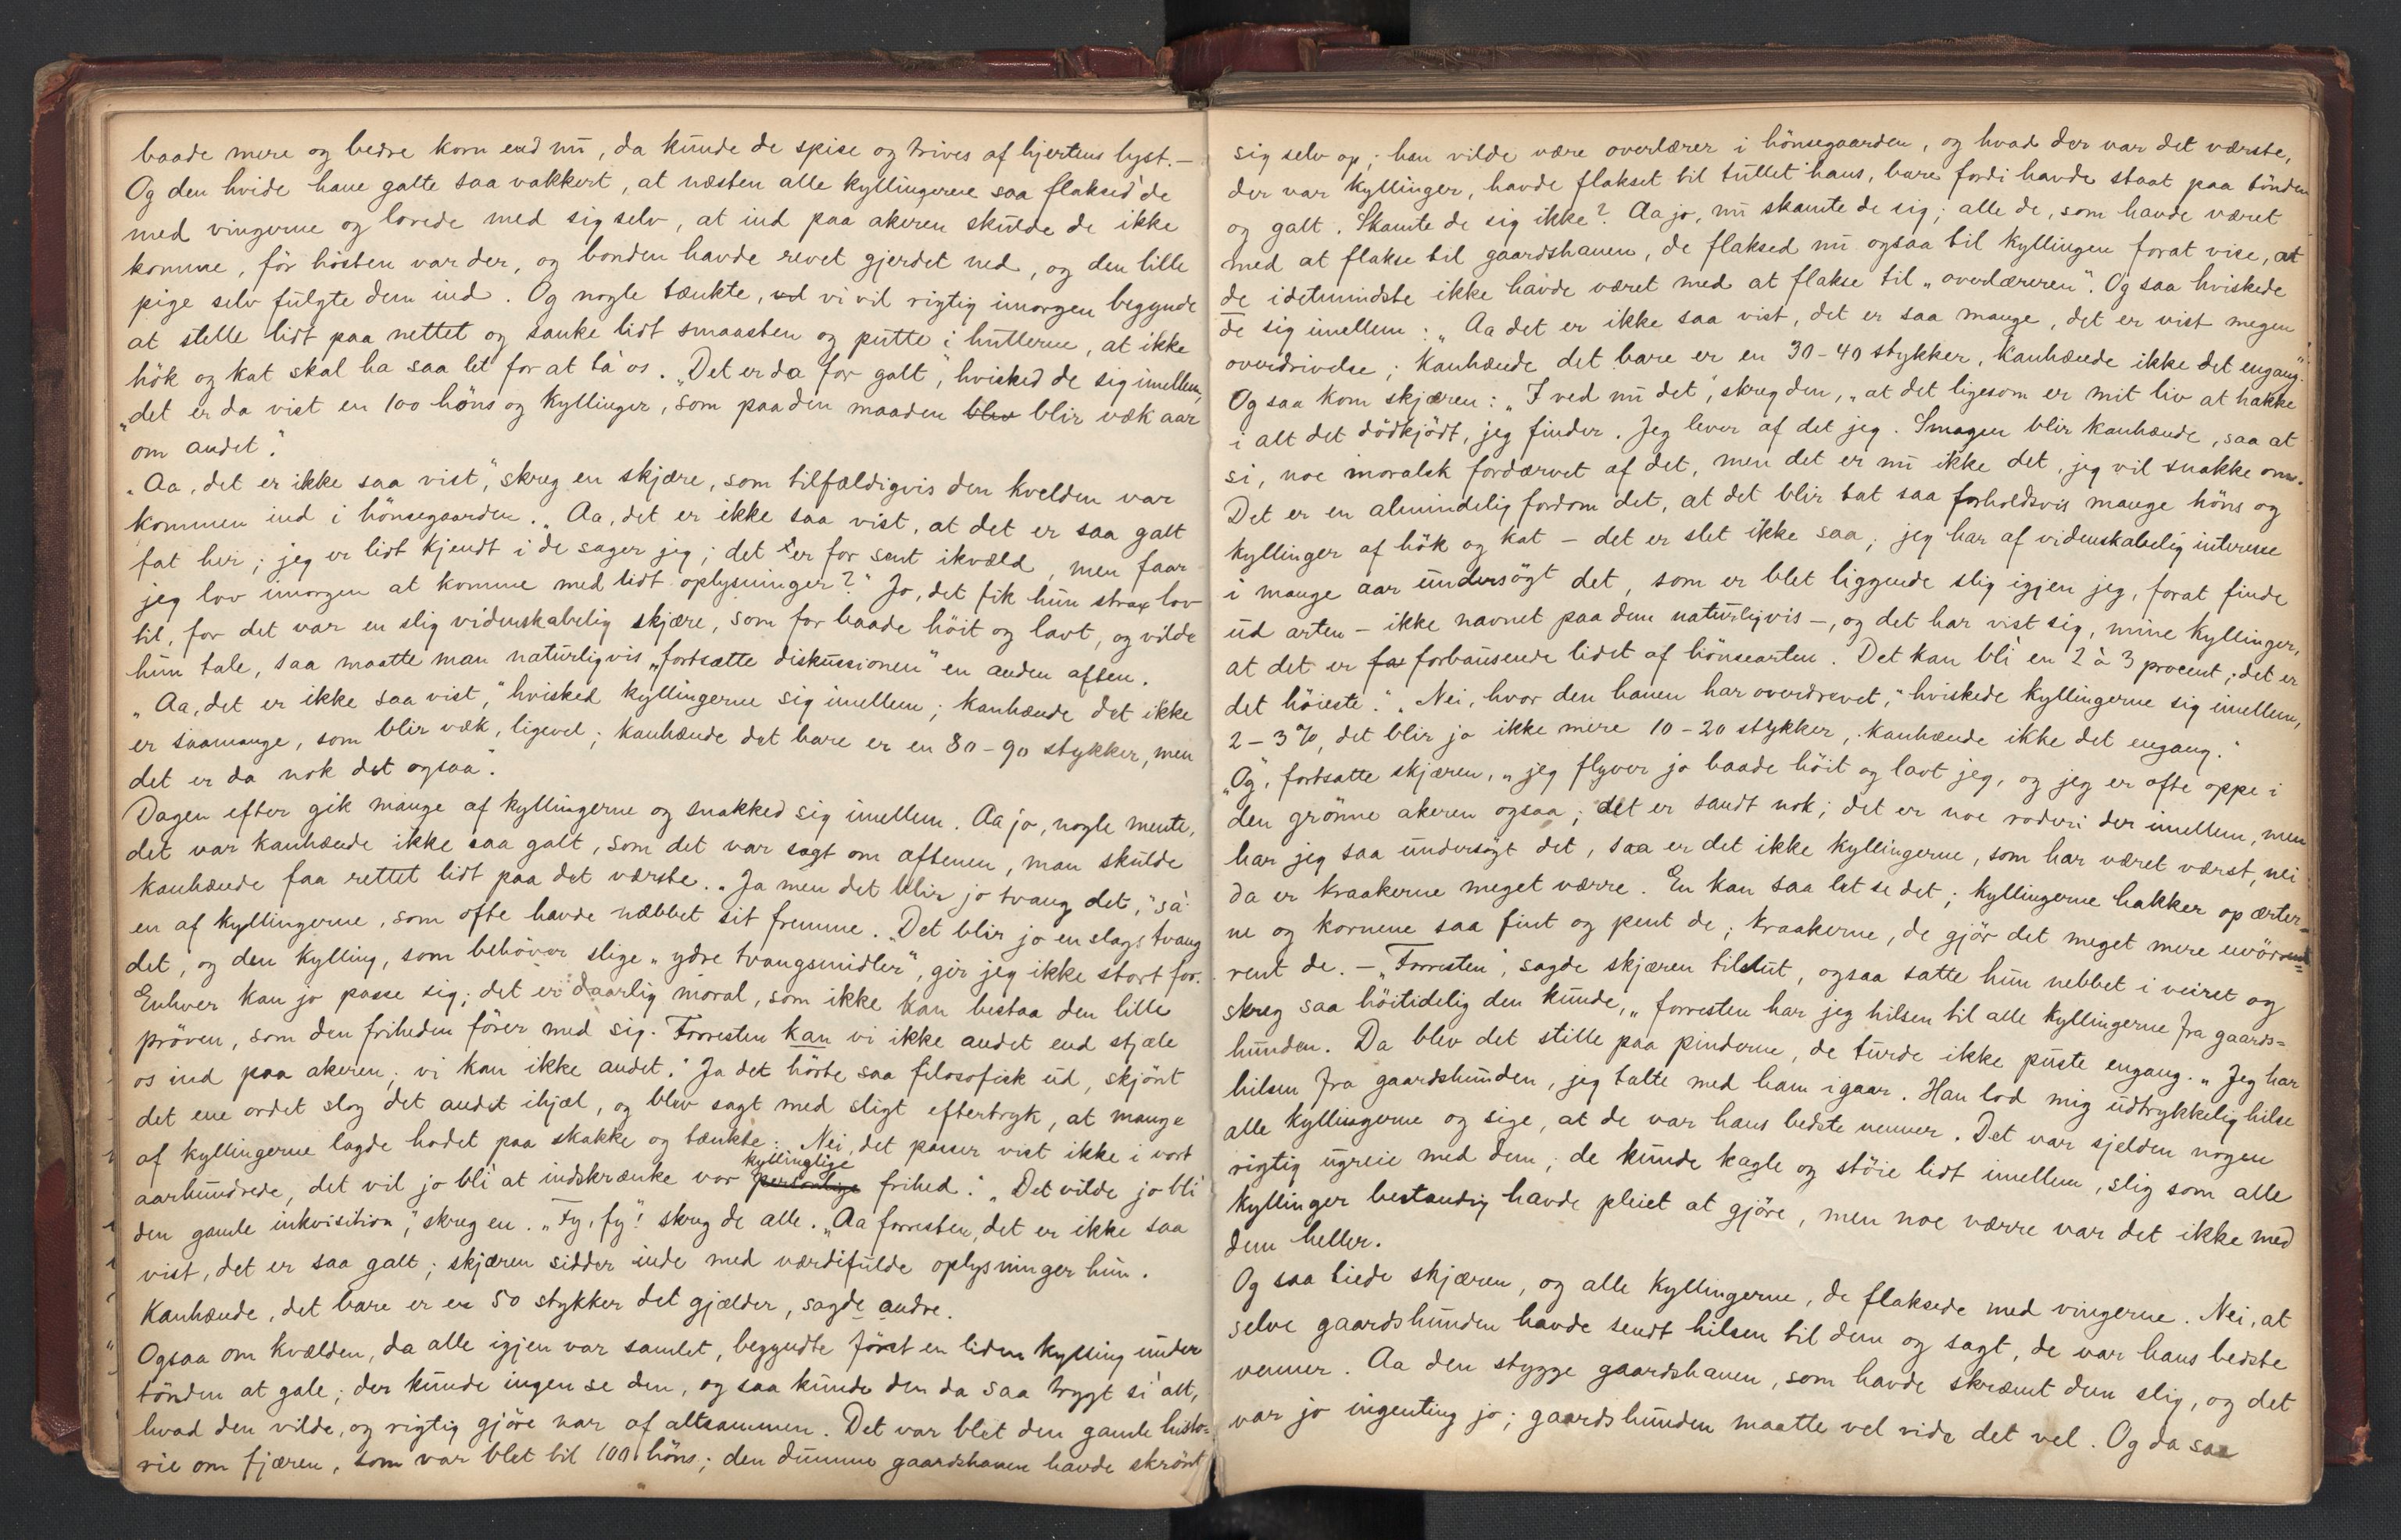 baade mere og bedre korn end nu, da kunde de spise og trives af hjertens lyst. –
Og den hvide hane galte saa vakkert, at næsten alle kyllingerne saa flaksed' de
med vingerne og lovede med sig selv, at ind paa akeren skulde de ikke
komme, för hösten var der, og bonden havde revet gjerdet ned, og den lille
pige selv fulgte dem ind. Og nogle tænkte, ud vi vil rigtig imorgen begynde
at stelle lidt paa nettet og sanke lidt smaasten og putte i hullerne, at ikke
hök og kat skal ha saa let for at ta' os. „Det er da for galt", hvisked de sig imellem,
„det er da vist en 100 höns og kyllinger, som paa den maaden blev blir væk aar
om andet".
„Aa, det er ikke saa vist," skreg en skjære, som tilfældigvis den kvelden var
kommen ind i hönsegaarden. „Aa, det er ikke saa vist, at det er saa galt
fat her; jeg er lidt kjendt i de sager jeg; det er for sent ikvæld, men faar
jeg lov imorgen at komme med lidt oplysninger?" Jo, det fik hun strax lov
til, for det var en slig videnskabelig skjære, som for baade höit og lavt, og vilde
hun tale, saa maatte man naturligvis „fortsætte diskussionen" en anden aften.
„Aa, det er ikke saa vist," hvisked kyllingerne sig imellem; kanhænde det ikke
er saamange, som blir væk, ligevel; kanhænde det bare er en 80-90 stykker, men
det er da nok det ogsaa".
Dagen efter gik mange af kyllingerne og snakked sig imellem. Aa jo, nogle mente,
det var kanhænde ikke saa galt, som det var sagt om aftenen, man skulde
kanhænde faa rettet lidt paa det værste. „Ja men det blir jo tvang det," sa'
en af kyllingerne, som ofte havde næbbet sit fremme. „Det blir jo en slags tvang
det, og den kylling, som behöver slige „ydre tvangsmidler", gir jeg ikke stort for.
Enhver kan jo passe sig; det er daarlig moral, som ikke kan bestaa den lille
pröven, som den friheden förer med sig. Forresten kan vi ikke andet end stjæle
os ind paa akeren; vi kan ikke andet." Ja det hörte saa filosofisk ud, skjönt
det ene ordet slog det andet ihjæl, og blev sagt med sligt eftertryk, at mange
af kyllingerne lagde hodet paa skakke og tænkte: Nei, det passer vist ikke i vort
aarhundrede, det vil jo bli' at indskrænke vor personlige kyllinglige frihed". „Det vilde jo bli'
den gamle inkvisition," skreg en. „Fy, fy"! skreg de alle. „Aa forresten, det er ikke saa
vist, det er saa galt; skjæren sidder inde med værdifulde oplysninger hun.
Kanhænde, det bare er en 50 stykker det gjælder, sagde andre.
Ogsaa om kvælden, da alle igjen var samlet, begyndte först en liden kylling under
tönden at gale; der kunde ingen se den, og saa kunde den da saa trygt si' alt,
hvad den vilde, og rigtig gjöre nar af altsammen. Det var blet den gamle histo-
rie om fjæren, som var blet til 100 höns; den dumme gaardshanen havde skrönt
sig selv op; han vilde være overlærer i hönsegaarden, og hvad der var det værste,
der var kyllinger, havde flakset til tullet hans, bare fordi havde staat paa tönden
og galt. Skamte de sig ikke? Aa jo, nu skamte de sig; alle de, som havde været
med at flakse til gaardshanen, de flaksed nu ogsaa til kyllingen forat vise, at
de idetmindste ikke havde været med at flakse til „overlæreren". Og saa hviskede
de sig imellem: „Aa det er ikke saa vist, det er saa mange, det er vist megen
overdrivelse; kanhænde det bare er en 30-40 stykker, kanhænde ikke det engang."
Og saa kom skjæren: „I ved nu det", skreg den, „at det ligesom er mit liv at hakke
i alt det dödkjödt, jeg finder. Jeg lever af det jeg. Smagen blir kanhænde, saa at
si, noe moralsk fordærvet af det, men det er nu ikke det, jeg vil snakke om.
Det er en almindelig fordom det, at det blir tat saa forholdsvis mange höns og
kyllinger af hök og kat – det er slet ikke saa; jeg har af videnskabelig interesse
i mange aar undersögt det, som er blet liggende slig igjen jeg, forat finde
ud arten – ikke navnet paa dem naturligvis –, og det har vist sig, mine kyllinger,
at det er for forbausende lidet af hönsearten. Det kan bli' en 2 à 3 procent; det er
det höieste". „Nei, hvor den hanen har overdrevet," hviskede kyllingerne sig imellem,
2-3%, det blir jo ikke mere 10-20 stykker, kanhænde ikke det engang."
„Og", fortsatte skjæren, „jeg flyver jo baade höit og lavt jeg, og jeg er ofte oppe i
den grönne akeren ogsaa; det er sandt nok; det er noe roderi der imellem, men
har jeg saa undersögt det, saa er det ikke kyllingerne, som har været værst, nei
da er kraakerne meget værre. En kan saa let se det; kyllingerne hakker op ærter-
ne og kornene saa fint og pent de; kraakerne, de gjör det meget mere uvörren=
rent de. – „Forresten", sagde skjæren tilslut, ogsaa satte hun nebbet i veiret og
skreg saa höitidelig den kunde, „forresten har jeg hilsen til alle kyllingerne fra gaards=
hunden. Da blev det stille paa pinderne, de turde ikke puste engang. „Jeg har
hilsen fra gaardshunden, jeg talte med ham igaar. Han lod mig udtrykkelig hilse
alle kyllingerne og sige, at de var hans bedste venner. Det var sjelden nogen
rigtig ugreie med dem; de kunde kagle og stöie lidt imellem, slig som alle
kyllinger bestandig havde pleiet at gjöre, men noe værre var det ikke med
dem heller.
Og saa tiede skjæren, og alle kyllingerne, de flaksede med vingerne. Nei, at
selve gaardshunden havde sendt hilsen til dem og sagt, de var hans bedste
venner. Aa den stygge gaardshanen, som havde skræmt dem slig, og det
var jo ingenting jo; gaardshunden maatte vel vide det vel. Og da saa